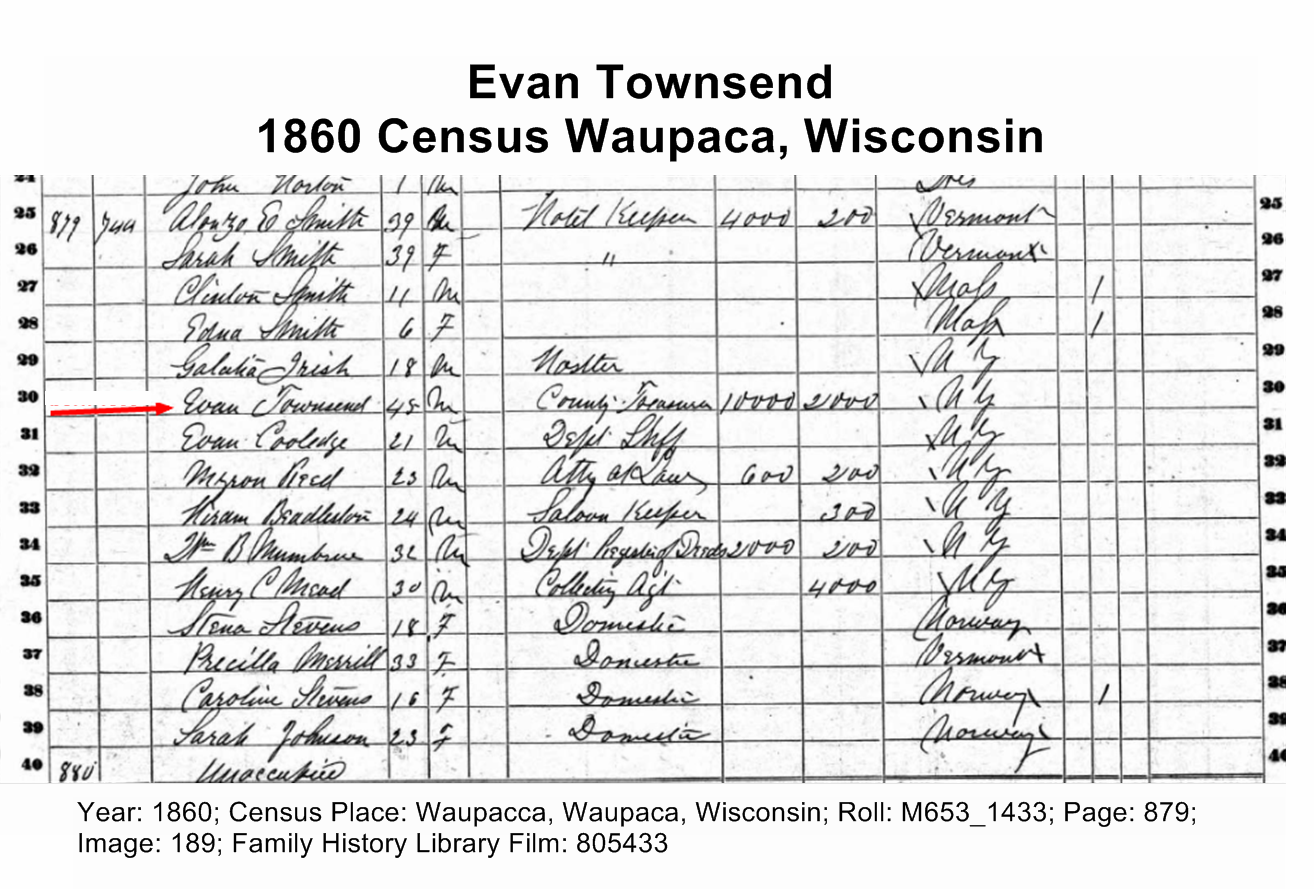 Evan Townsend
1860 Census Waupaca, Wisconsin
24 John Norton 1 M
25 879 744 Alonzo E Smith 39 M Hotel Keeper 4000 200 Vermont 25
26 Sarah Smith 39 F " Vermont 26
27 Clinton Smith 11 M Mass 1 27
28 Edna Smith 6 F Mass 1 28
29 Irish 18 M Hostler N Y 29
30 Evan Townsend 45 M County Treasurer 10000 2000 N Y 30
31 Evan Cooledge 21 M Dept Shff N Y 31
32 Myron Reed 23 M Atty at Law 600 200 N Y 32
33 Hiram 24 M Saloon Keeper 300 N Y 33
34 Wm B 32 M Dept Register of Deeds 2000 200 N Y 34
35 Henry C Mead 30 M Collecting Agt 4000 N Y 35
36 Stena Stevens 18 F Domestic Norway 36
37 Precilla Merrill 33 F Domestic Vermont 37
38 Caroline Stevens 16 F Domestic Norway 1 38
39 Sarah Johnson 23 F Domestic Norway 39
40 880 Unoccupied 40
Year: 1860; Census Place: Waupacca, Waupaca, Wisconsin; Roll: M653_1433; Page: 879;
Image: 189; Family History Library Film: 805433